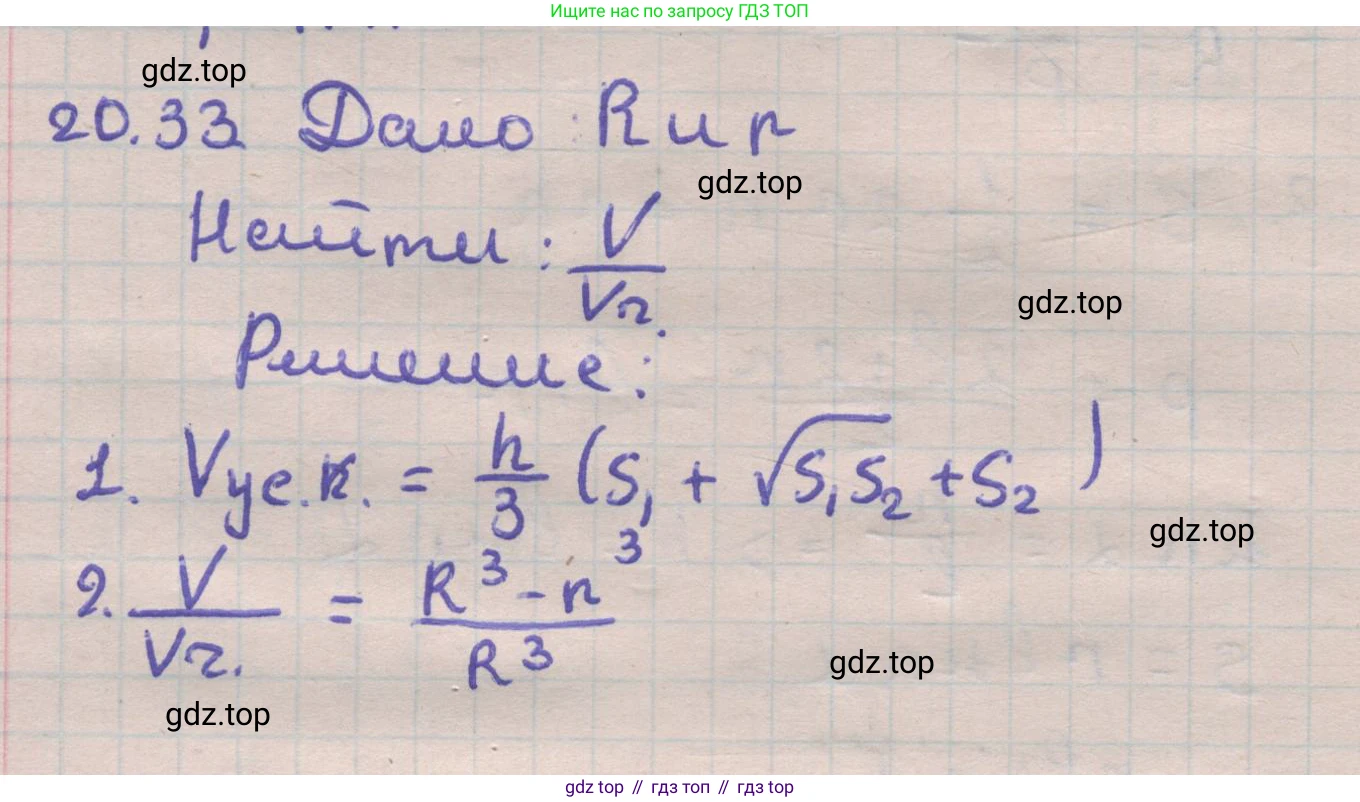 Ищите нас по запросу ГДЗ ТОП
gdz.top
20.33 Дано: R и r
gdz.top
Найти: V/Vг.
gdz.top
Решение:
1. Vус.к. = h/3 (S₁ + √S₁S₂ + S₂)
gdz.top
2. V/Vг. = R³ - r³/R³
gdz.top
gdz.top
gdz top // гдз топ // gdz top